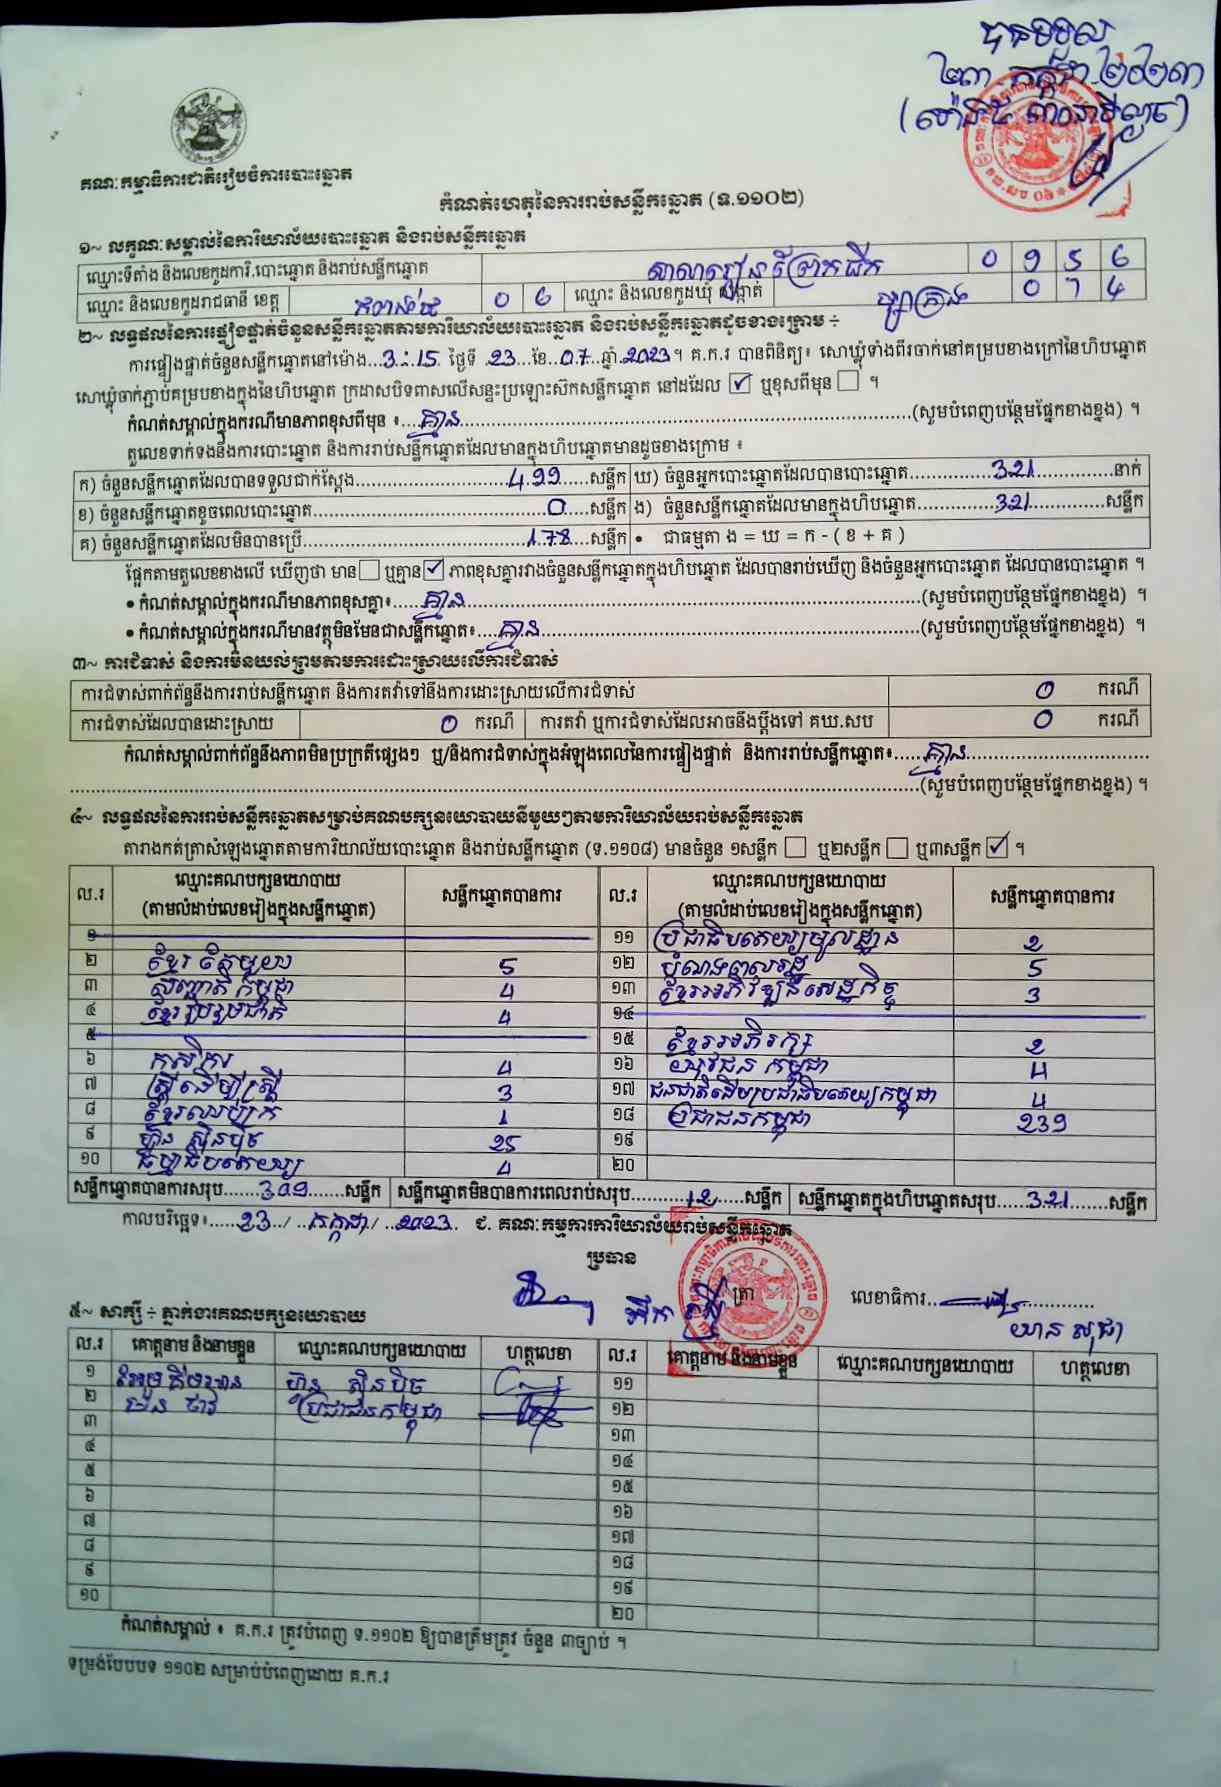 បានទទួល
២៣ កក្កដា ២០២៣
គណៈកម្មាធិការជាតិរៀបចំការបោះឆ្នោត
កំណត់ហេតុនៃការរាប់សន្លឹកឆ្នោត (ទ.១១០២)
១~ លក្ខណៈសម្គាល់នៃការិយាល័យបោះឆ្នោត និងរាប់សន្លឹកឆ្នោត
ឈ្មោះទីតាំង និងលេខកូដការិ.បោះឆ្នោត និងរាប់សន្លឹកឆ្នោត សាលារៀនព្រែកជីក 0 9 5 6
ឈ្មោះ និងលេខកូដរាជធានី ខេត្ត កំពង់ធំ 0 6 ឈ្មោះ និងលេខកូដឃុំ សង្កាត់ 0 7 4
២~ លទ្ធផលនៃការផ្ទៀងផ្ទាត់ចំនួនសន្លឹកឆ្នោតតាមការិយាល័យបោះឆ្នោត និងរាប់សន្លឹកឆ្នោតដូចខាងក្រោម ÷
ការផ្ទៀងផ្ទាត់ចំនួនសន្លឹកឆ្នោតនៅម៉ោង...3:15. ថ្ងៃទី .23...ខែ..07...ឆ្នាំ.2023។ គ.ក.រ បានពិនិត្យ៖ សោឃ្លុំទាំងពីរចាក់នៅគម្របខាងក្រៅនៃហិបឆ្នោត
សោឃ្លុំចាក់ភ្ជាប់គម្របខាងក្នុងនៃហិបឆ្នោត ក្រដាសបិទពាសលើសន្ទះប្រឡោះស៊កសន្លឹកឆ្នោត នៅដដែល ☑ ឬខុសពីមុន ☐ ។
កំណត់សម្គាល់ក្នុងករណីមានភាពខុសពីមុន ៖....គ្មាន....(សូមបំពេញបន្ថែមផ្នែកខាងខ្នង) ។
តួលេខទាក់ទងនឹងការបោះឆ្នោត និងការរាប់សន្លឹកឆ្នោតដែលមានក្នុងហិបឆ្នោតមានដូចខាងក្រោម ៖
ក) ចំនួនសន្លឹកឆ្នោតដែលបានទទួលជាក់ស្តែង....499....សន្លឹក ឃ) ចំនួនអ្នកបោះឆ្នោតដែលបានបោះឆ្នោត....321....នាក់
ខ) ចំនួនសន្លឹកឆ្នោតខូចពេលបោះឆ្នោត....0....សន្លឹក ង) ចំនួនសន្លឹកឆ្នោតដែលមានក្នុងហិបឆ្នោត....321....សន្លឹក
គ) ចំនួនសន្លឹកឆ្នោតដែលមិនបានប្រើ....178....សន្លឹក • ជាធម្មតា ង = ឃ = ក - ( ខ + គ )
ផ្អែកតាមតួលេខខាងលើ ឃើញថា មាន ☐ ឬគ្មាន ☑ ភាពខុសគ្នារវាងចំនួនសន្លឹកឆ្នោតក្នុងហិបឆ្នោត ដែលបានរាប់ឃើញ និងចំនួនអ្នកបោះឆ្នោត ដែលបានបោះឆ្នោត ។
• កំណត់សម្គាល់ក្នុងករណីមានភាពខុសគ្នា៖....គ្មាន....(សូមបំពេញបន្ថែមផ្នែកខាងខ្នង) ។
• កំណត់សម្គាល់ក្នុងករណីមានវត្ថុមិនមែនជាសន្លឹកឆ្នោត៖....គ្មាន....(សូមបំពេញបន្ថែមផ្នែកខាងខ្នង) ។
៣~ ការជំទាស់ និងការមិនយល់ព្រមតាមការដោះស្រាយលើការជំទាស់
ការជំទាស់ពាក់ព័ន្ធនឹងការរាប់សន្លឹកឆ្នោត និងការតវ៉ាទៅនឹងការដោះស្រាយលើការជំទាស់ 0 ករណី
ការជំទាស់ដែលបានដោះស្រាយ 0 ករណី ការតវ៉ា ឬការជំទាស់ដែលអាចនឹងប្តឹងទៅ គឃ.សប 0 ករណី
កំណត់សម្គាល់ពាក់ព័ន្ធនឹងភាពមិនប្រក្រតីផ្សេងៗ ឬ/និងការជំទាស់ក្នុងអំឡុងពេលនៃការផ្ទៀងផ្ទាត់ និងការរាប់សន្លឹកឆ្នោត៖....គ្មាន....
....(សូមបំពេញបន្ថែមផ្នែកខាងខ្នង) ។
៤~ លទ្ធផលនៃការរាប់សន្លឹកឆ្នោតសម្រាប់គណបក្សនយោបាយនីមួយៗតាមការិយាល័យរាប់សន្លឹកឆ្នោត
តារាងកត់ត្រាសំឡេងឆ្នោតតាមការិយាល័យបោះឆ្នោត និងរាប់សន្លឹកឆ្នោត (ទ.១១០៨) មានចំនួន ១សន្លឹក ☐ ឬ២សន្លឹក ☐ ឬ៣សន្លឹក ☑ ។
ល.រ ឈ្មោះគណបក្សនយោបាយ (តាមលំដាប់លេខរៀងក្នុងសន្លឹកឆ្នោត) សន្លឹកឆ្នោតបានការ ល.រ ឈ្មោះគណបក្សនយោបាយ (តាមលំដាប់លេខរៀងក្នុងសន្លឹកឆ្នោត) សន្លឹកឆ្នោតបានការ
១ ១១ ប្រជាធិបតេយ្យមូលដ្ឋាន 2
២ ខ្មែរតែមួយ 5 ១២ បំណងពលរដ្ឋ 5
៣ សញ្ជាតិកម្ពុជា 4 ១៣ ខ្មែរអភិវឌ្ឍន៍សេដ្ឋកិច្ច 3
៤ ខ្មែររួបរួមជាតិ 4 ១៤
៥ ១៥ ខ្មែរអភិរក្ស 2
៦ កសិករ 4 ១៦ យុវជនកម្ពុជា 4
៧ ស្ត្រីដើម្បីស្ត្រី 3 ១៧ ជនជាតិដើមប្រជាធិបតេយ្យកម្ពុជា 4
៨ ខ្មែរឈប់ក្រ 1 ១៨ ប្រជាជនកម្ពុជា 239
៩ ហ៊្វុនស៊ិនប៉ិច 25 ១៩
១០ ធម្មាធិបតេយ្យ 4 ២០
សន្លឹកឆ្នោតបានការសរុប....309....សន្លឹក សន្លឹកឆ្នោតមិនបានការពេលរាប់សរុប....12....សន្លឹក សន្លឹកឆ្នោតក្នុងហិបឆ្នោតសរុប....321....សន្លឹក
កាលបរិច្ឆេទ៖....23../..កក្កដា/..2023. ជ. គណៈកម្មការការិយាល័យរាប់សន្លឹកឆ្នោត
ប្រធាន
ត្រា លេខាធិការ
៥~ សាក្សី ÷ ភ្នាក់ងារគណបក្សនយោបាយ
ល.រ គោត្តនាម និងនាមខ្លួន ឈ្មោះគណបក្សនយោបាយ ហត្ថលេខា ល.រ គោត្តនាម និងនាមខ្លួន ឈ្មោះគណបក្សនយោបាយ ហត្ថលេខា
១ ហ៊្វុន ស៊ិនប៉ិច ១១
២ ប្រជាជនកម្ពុជា ១២
៣ ១៣
៤ ១៤
៥ ១៥
៦ ១៦
៧ ១៧
៨ ១៨
៩ ១៩
១០ ២០
កំណត់សម្គាល់ ៖ គ.ក.រ ត្រូវបំពេញ ទ.១១០២ ឱ្យបានត្រឹមត្រូវ ចំនួន ៣ច្បាប់ ។
ទម្រង់បែបបទ ១១០២ សម្រាប់បំពេញដោយ គ.ក.រ